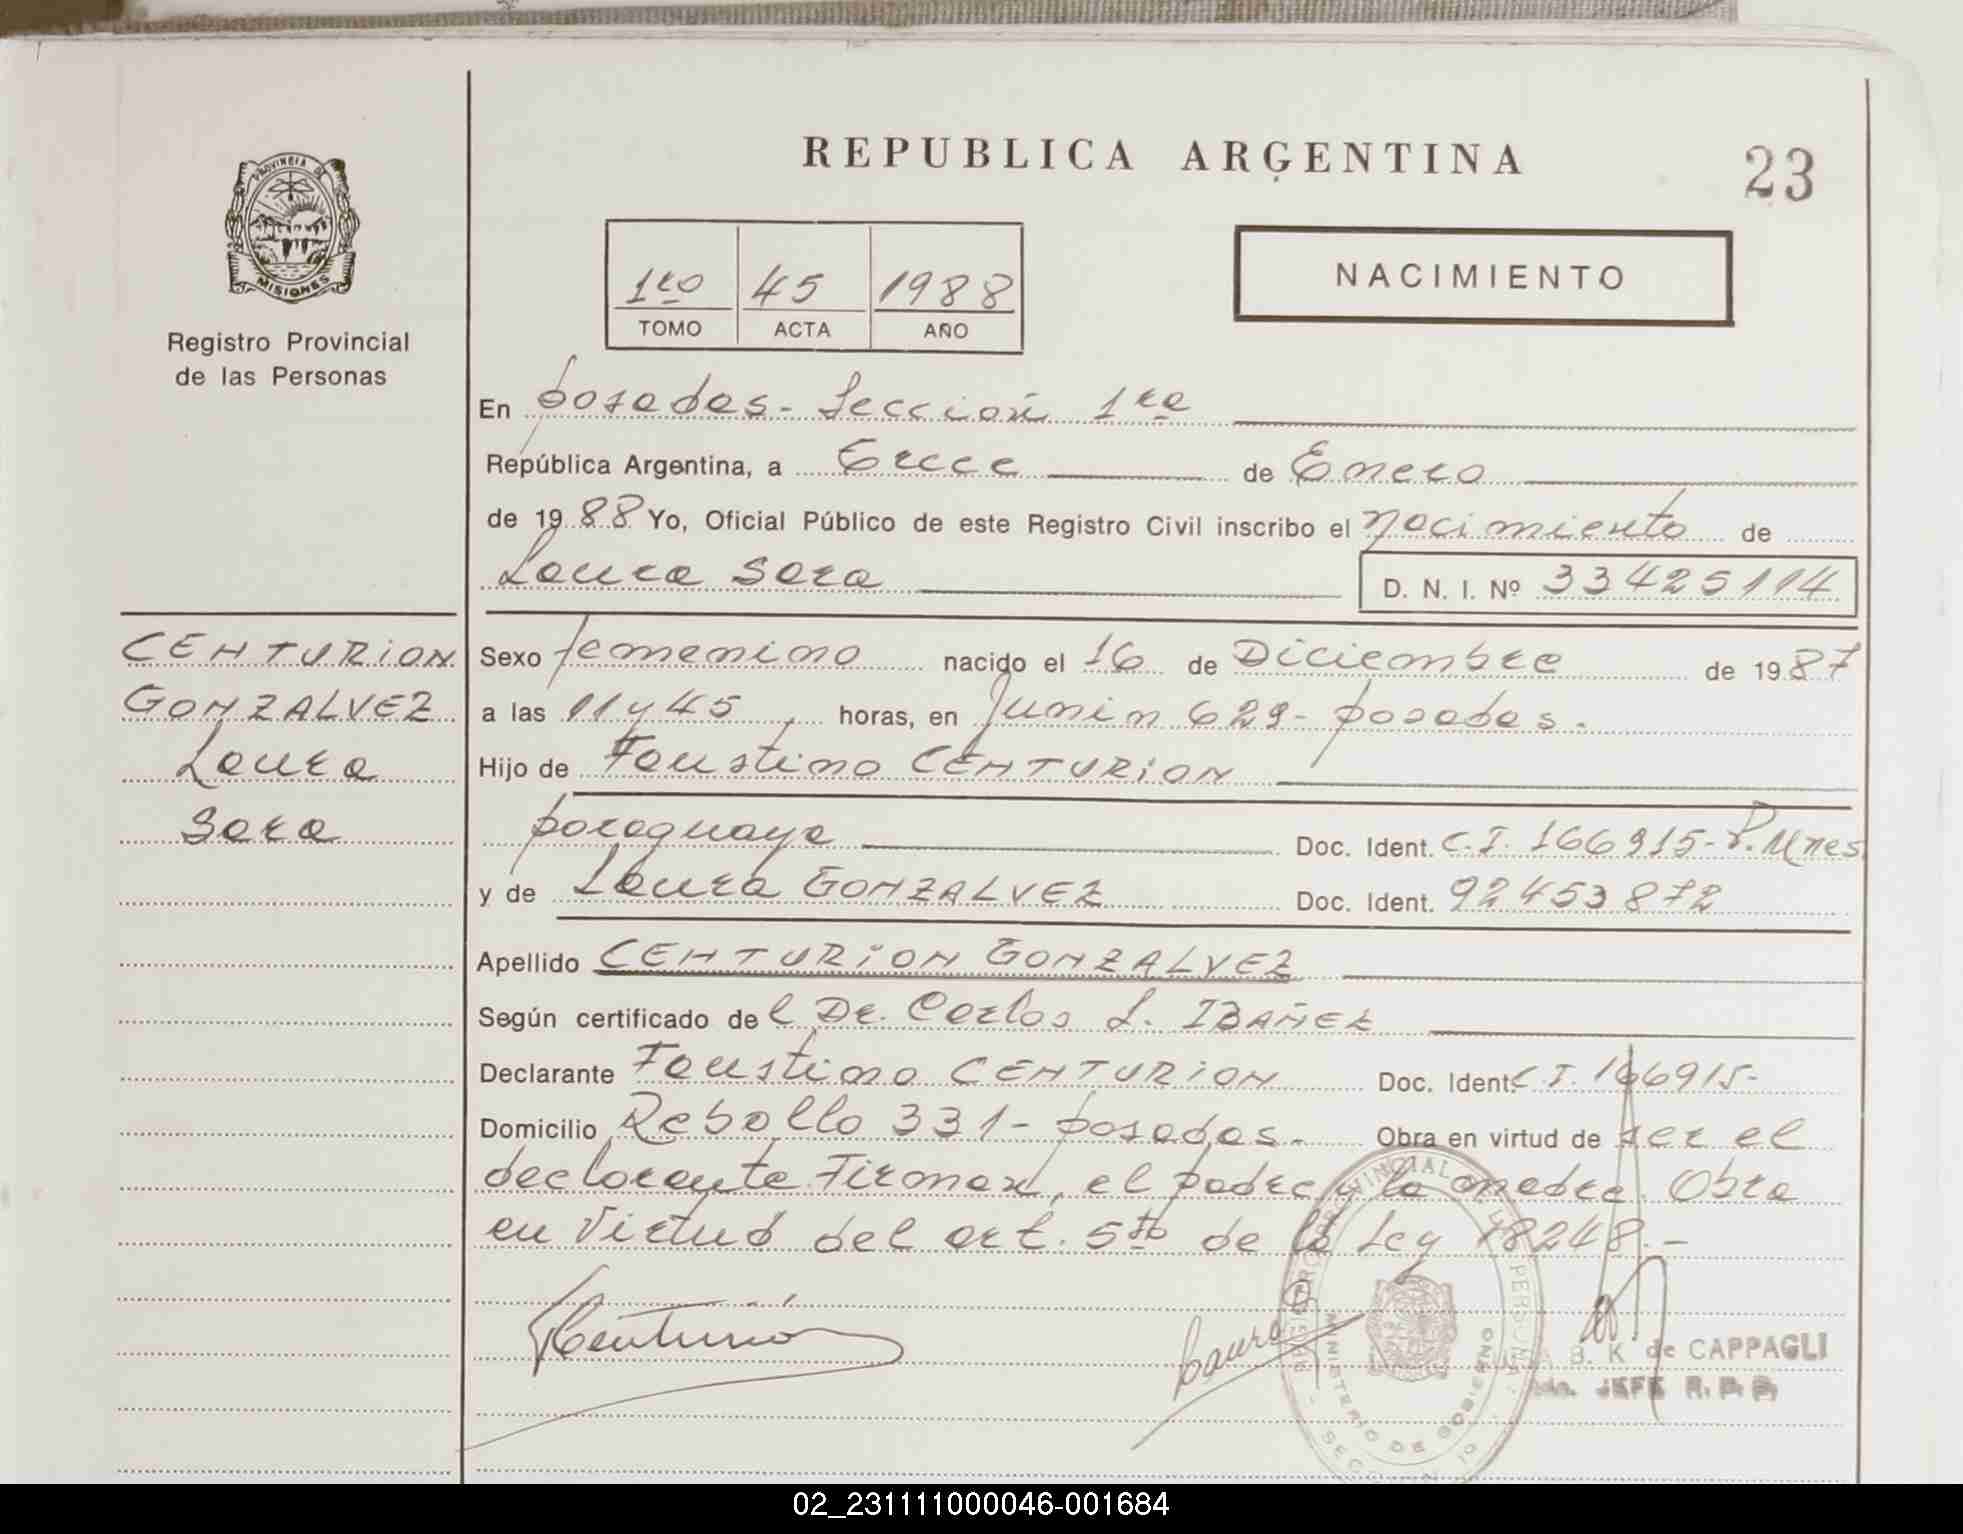 REPUBLICA ARGENTINA
23
PROVINCIA DE
MISIONES
Registro Provincial
de las Personas
1ro 45 1988
TOMO ACTA AÑO
NACIMIENTO
En posadas - Sección 1ra
República Argentina, a Trece de Enero
de 1988 Yo, Oficial Público de este Registro Civil inscribo el nacimiento de
Laura Sara D. N. I. Nº 33425114
CENTURION
GONZALVEZ
Laura
Sara
Sexo femenino nacido el 16 de Diciembre de 1987
a las 11 y 45 horas, en Junin 629 - posadas.
Hijo de Faustino CENTURION
paraguaya Doc. Ident. C.I. 166915 - P. Mnes.
y de Laura GONZALVEZ Doc. Ident. 92453872
Apellido CENTURION GONZALVEZ
Según certificado del Dr. Carlos L. IBAÑEZ
Declarante Faustino CENTURION Doc. Ident. C I. 166915-
Domicilio Rebollo 331 - posadas. Obra en virtud de ser el
declarante. Firman, el padre y la madre. Obra
en virtud del art. 5to de la Ley 18248.-
Centurión
Laura
B. K de CAPPAGLI
JEFE R. P. P.
PROVINCIAL DE LAS PERSONAS
MINISTERIO DE GOBIERNO
02_231111000046-001684